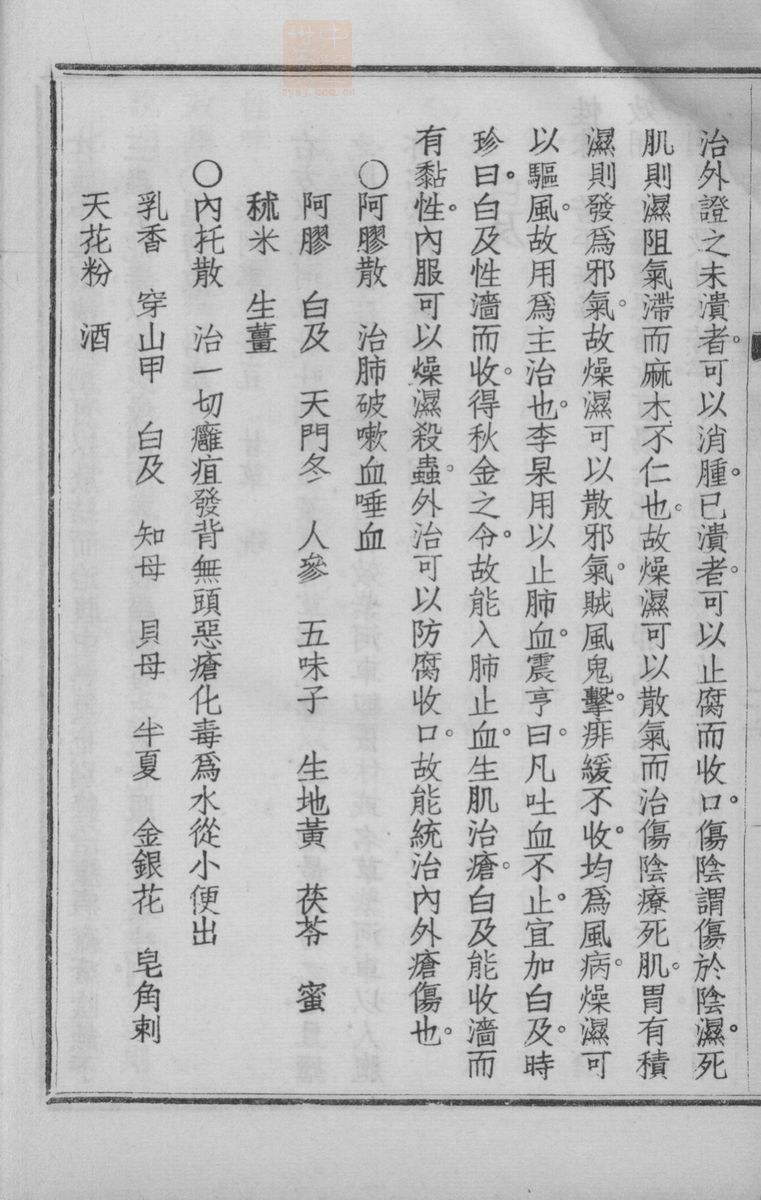 治外證之未潰者。可以消腫。已潰者。可以止腐而收口。傷陰謂傷於陰濕。死
肌則濕阻氣滯而麻木不仁也。故燥濕可以散氣而治傷陰療死肌。胃有積
濕則發爲邪氣。故燥濕可以散邪氣。賊風鬼擊。痱緩不收。均爲風病。燥濕可
以驅風。故用爲主治也。李杲用以止肺血。震亨曰。凡吐血不止。宜加白及。時
珍曰。白及性濇而收。得秋金之令。故能入肺止血。生肌治瘡。白及能收濇而
有黏性。內服可以燥濕殺蟲。外治可以防腐收口。故能統治內外瘡傷也。
〇阿膠散 治肺破嗽血唾血
阿膠 白及 天門冬 人參 五味子 生地黃 茯苓 蜜
秫米 生薑
〇內托散 治一切癰疽發背無頭惡瘡化毒爲水從小便出
乳香 穿山甲 白及 知母 貝母 半夏 金銀花 皂角刺
天花粉 酒